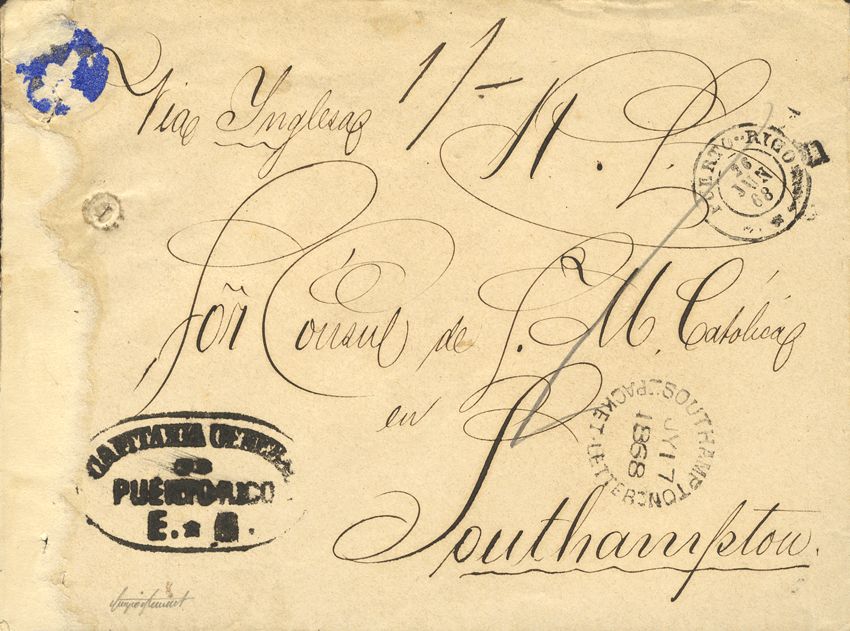 Via Ynglesa
1/-
PUERTO-RICO
26
JUN
68
Señ Cónsul de S. M. Católica
en
Southampton.
CAPITANIA GENERAL
DE
PUERTO-RICO
E. M.
SOUTHAMPTON
PACKET-LETTER
JY 17
1868